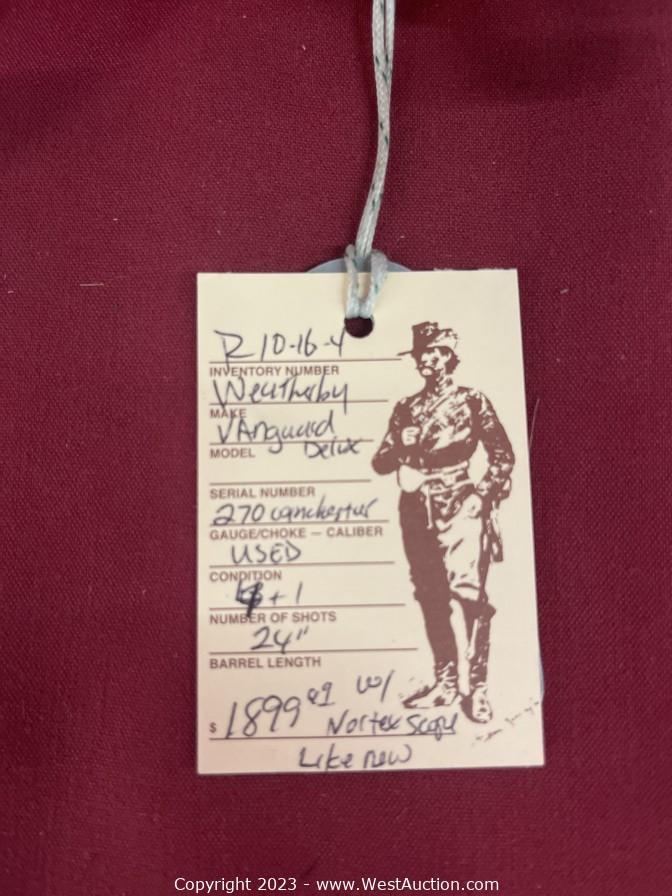 R 10-16-4
INVENTORY NUMBER
Weatherby
MAKE
VAnguard
MODEL Delux
SERIAL NUMBER
270 winchester
GAUGE/CHOKE — CALIBER
USED
CONDITION
+ 1
NUMBER OF SHOTS
24"
BARREL LENGTH
$ 1899 99 w/
Vortex Scope
Like new
Copyright 2023 - www.WestAuction.com